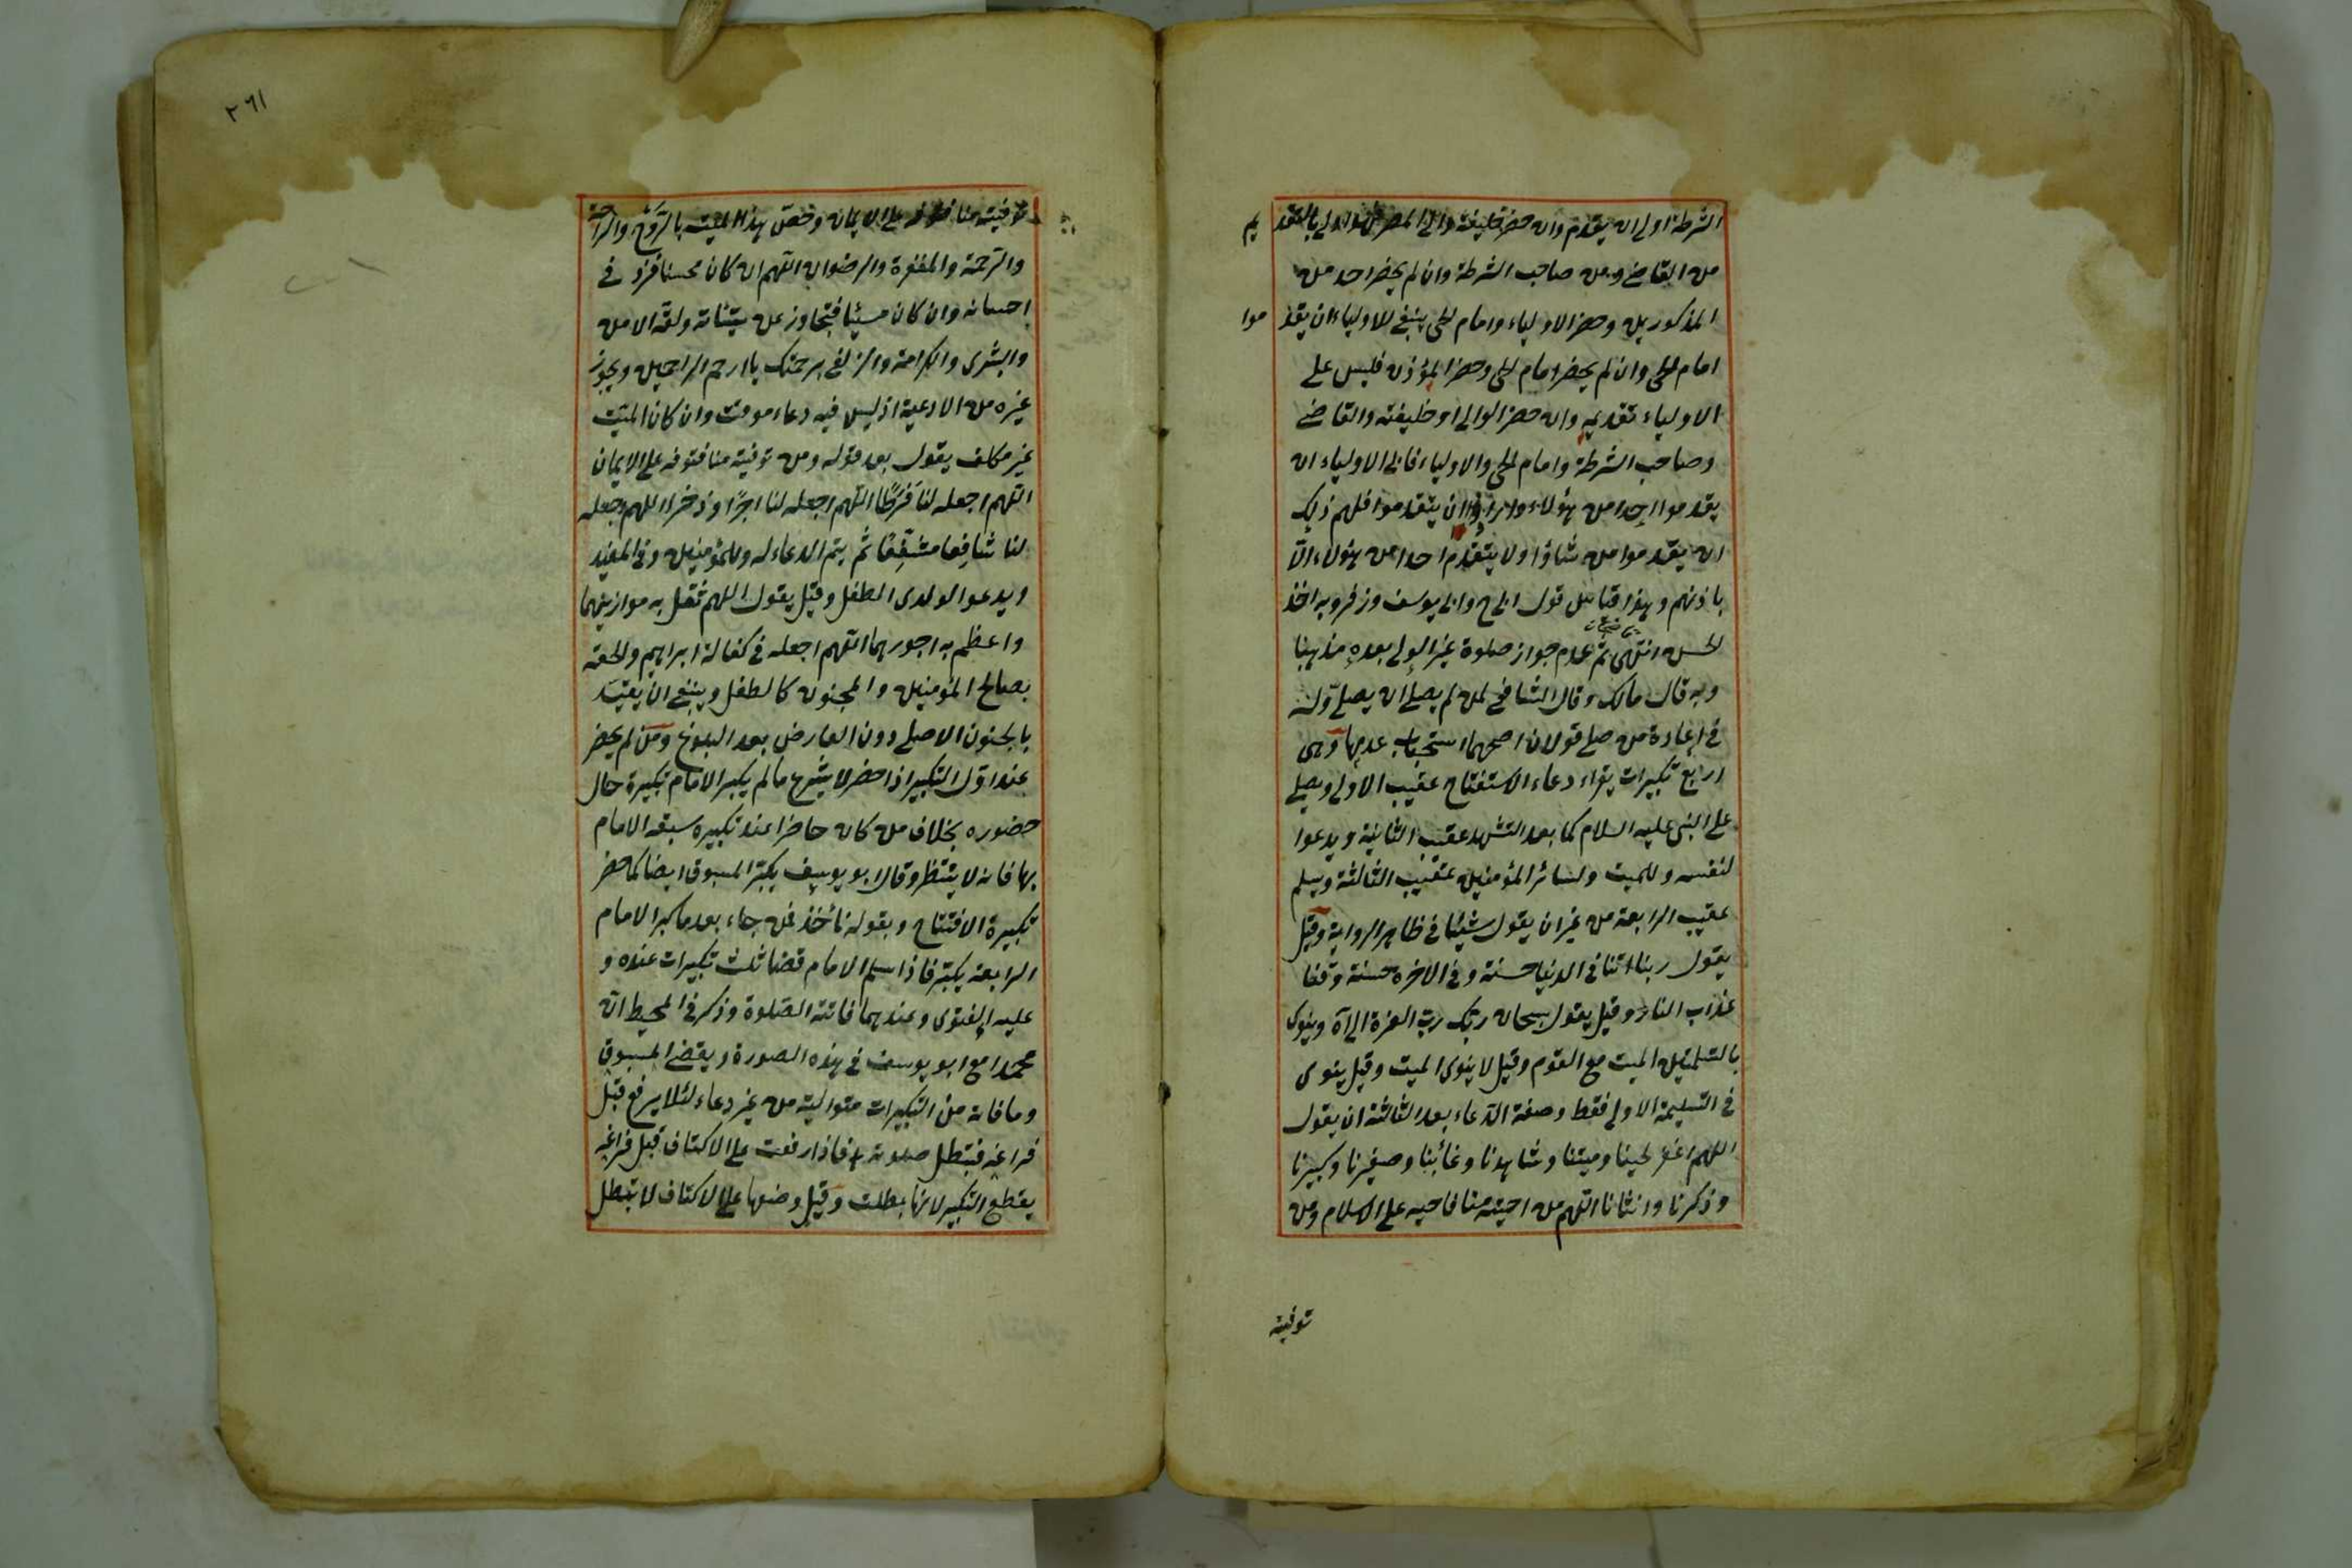 الشرطة اولى ان يقدم وان حضر خليفة والى المصر فهو اولى بالتقديم
من القاضي ومن صاحب الشرطة وان لم يحضر احد من
المذكورين وحضر الاولياء وامام الحي ينبغي للاولياء ان يقدموا
امام الحي وان لم يحضر امام الحي وحضر المؤذن فليس على
الاولياء تقديمه وان حضر الوالي او خليفته والقاضي
وصاحب الشرطة وامام الحي والاولياء فابى الاولياء ان
يقدموا احدا من هؤلاء وارادوا ان يتقدموا فلهم ذلك
ان يقدموا من شاؤا ولا يتقدم احدا من هؤلاء الا
باذنهم وهذا قياس قول ابي ح وابي يوسف وزفر وبه اخذ
الحسن انتهى ثم عدم جواز صلوة غير الولي بعده مذهبنا
وبه قال مالك وقال الشافعي لمن لم يصل ان يصلي وله
في اعادة من صلى قولان اصحهما استحباب عدمها وهي
اربع تكبيرات يقراء دعاء الاستفتاح عقيب الاولى ويصلي
على النبي عليه السلام كما بعد التشهد عقيب الثانية ويدعوا
لنفسه وللميت ولسائر المؤمنين عقيب الثالثة ويسلم
عقيب الرابعة من غير ان يقول شيئا في ظاهر الرواية وقيل
يقول ربنا اتنا في الدنيا حسنة وفي الاخرة حسنة وقنا
عذاب النار وقيل يقول سبحان ربك رب العزة الى آه وينوي
بالتسلمتين الميت مع القوم وقيل لا ينوي الميت وقيل ينوي
في التسليمة الاولى فقط وصفة الدعاء بعد الثالثة ان يقول
اللهم اغفر لحينا وميتنا وشاهدنا وغائبنا وصغيرنا وكبيرنا
وذكرنا وانثانا اللهم من احييته منا فاحيه على الاسلام ومن
توفيته
٢٦١
توفيته منا فتوفه على الايمان وخص بهذا الميت بالروح والراحة
والرحمة والمغفرة والرضوان اللهم ان كان محسنا فزد في
احسانه وان كان مسيئا فتجاوز عن سيئاته ولقه الامن
والبشرى والكرامة والزلفى برحمتك يا ارحم الراحمين ويجوز
غيره من الادعية اذ ليس فيه دعاء موقت وان كان الميت
غير مكلف يقول بعد قوله ومن توفيته منا فتوفه على الايمان
اللهم اجعله لنا فرطا اللهم اجعله لنا اجرا وذخرا اللهم اجعله
لنا شافعا مشفعا ثم يتم الدعاء له وللمؤمنين وفي المفيد
ويدعوا لوالدي الطفل وقيل يقول اللهم ثقل به موازينهما
واعظم به اجورهما اللهم اجعله في كفالة ابراهيم والحقه
بصالح المؤمنين والمجنون كالطفل وينبغي ان يقيد
بالجنون الاصلي دون العارض بعد البلوغ ومن لم يحضر
عند اول التكبير اذا حضر لا يشرع ما لم يكبر الامام تكبيرة حال
حضوره بخلاف من كان حاضرا عند تكبيره سبقه الامام
بها فانه لا ينتظر وقال ابو يوسف يكبر المسبوق ايضا كما حضر
تكبيرة الافتتاح وبقوله نأخذ فمن جاء بعد ما كبر الامام
الرابعة يكبر فاذا سلم الامام قضا ثلث تكبيرات عنده و
عليه الفتوى وعندهما فاتته الصلوة وذكر في المحيط ان
محمدا مع ابو يوسف في هذه الصورة ويقضي المسبوق
وما فاته من التكبيرات متوالية من غير دعاء لئلا يرفع قبل
فراغه فتبطل صلوته فاذا رفعت على الاكتاف قبل فراغه
يقطع التكبير لانها بطلت وقيل وضعها على الاكتاف لا تبطل